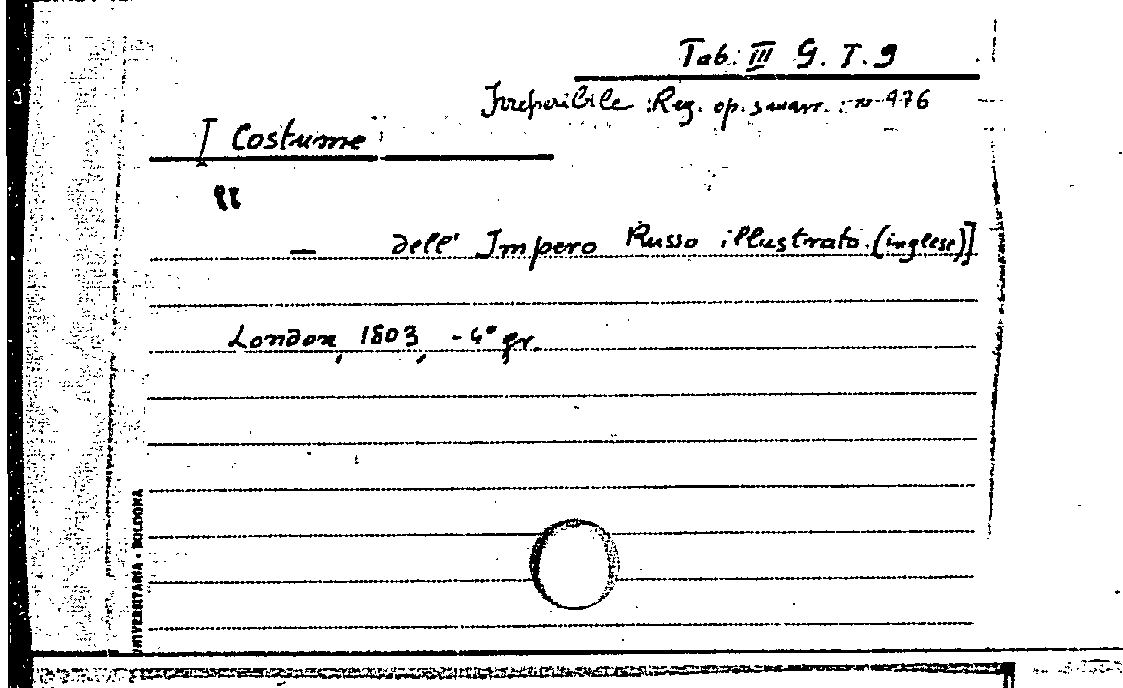 Tab. III G. T. 9
Irreperibile: Reg. op. smarr. : n. 476
[ Costume
— dell' Impero Russo illustrato (inglese)]
London, 1803, - 4° gr.
UNIVERSITARIA • BOLOGNA